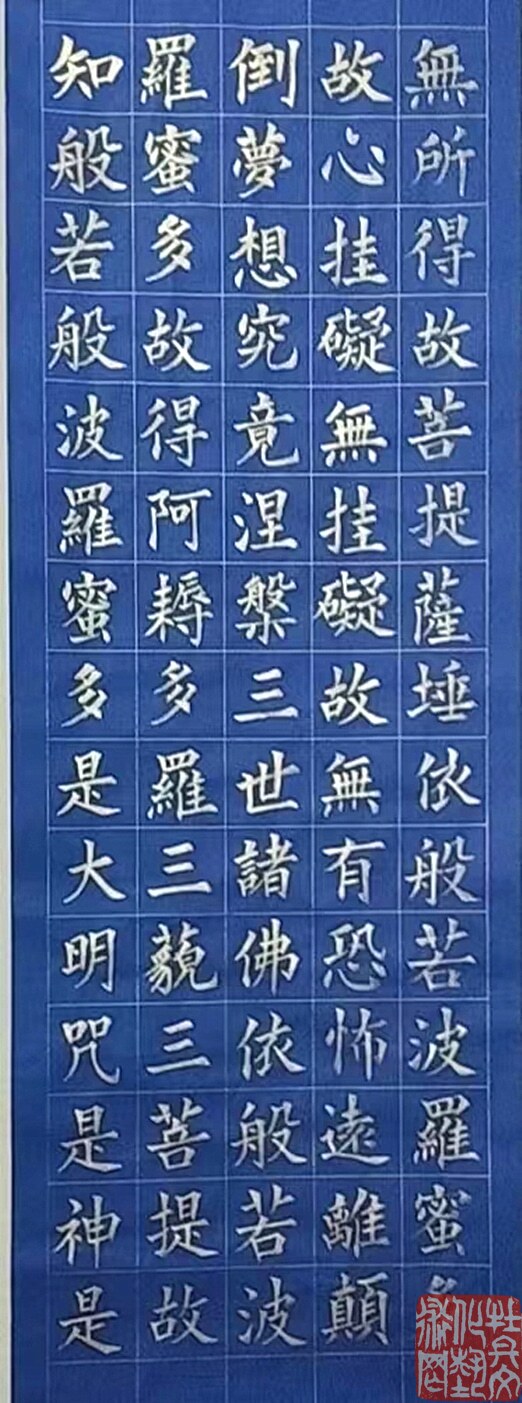 無所得故菩提薩埵依般若波羅蜜多
故心挂礙無挂礙故無有恐怖遠離顛
倒夢想究竟涅槃三世諸佛依般若波
羅蜜多故得阿耨多羅三藐三菩提故
知般若般波羅蜜多是大明咒是神是